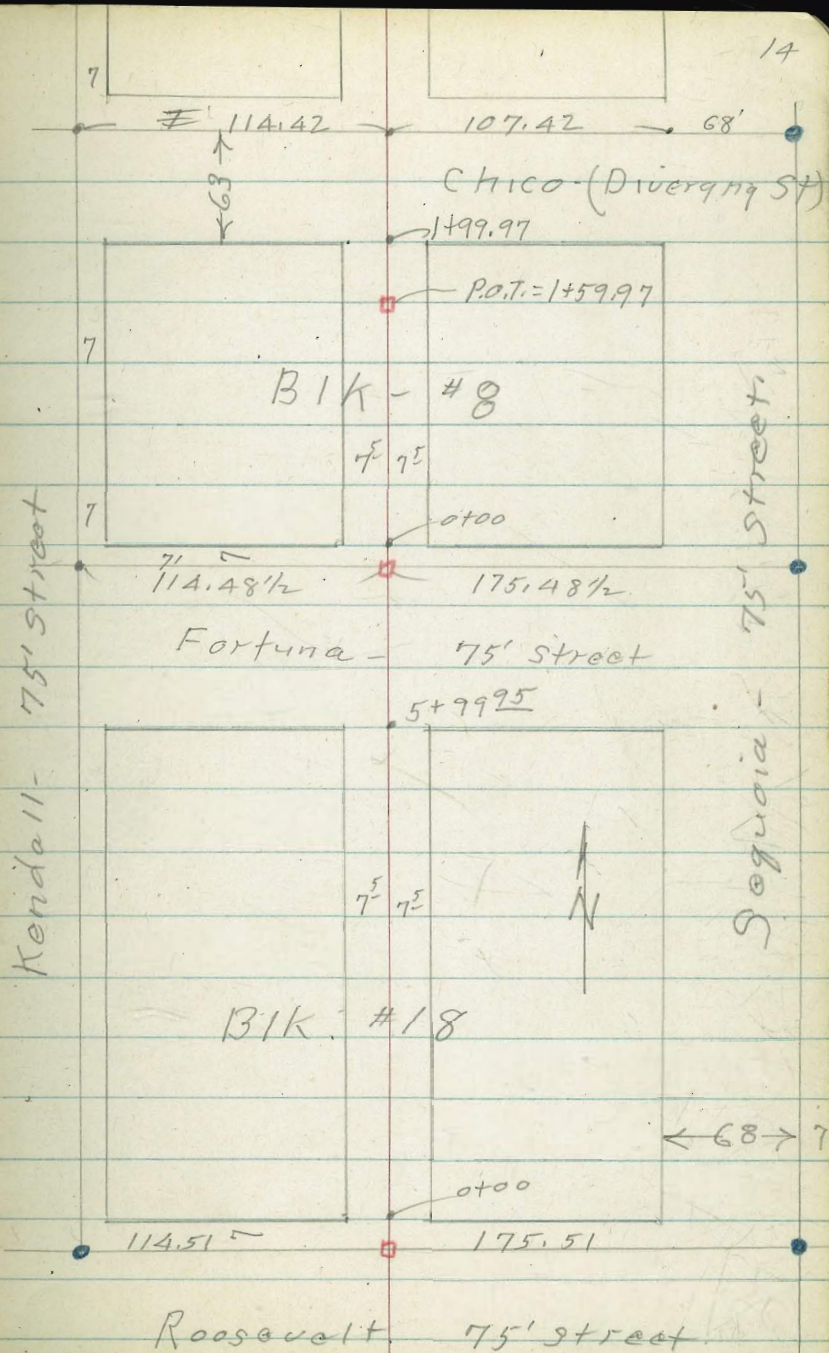 14
7
114.42 107.42 68'
63
Chico-(Diverqnq St)
1+99.97
P.O.T.=1+59.97
7
Blk- #8
7⁵ 7⁵
7
0+00
7'
114.48½ 175.48½
Fortuna- 75' Street
5+99⁹⁵
Kendall- 75' Street
Sequoia- 75' Street.
7⁵ 7⁵
N
Blk. #18
68 7
0+00
114.51 175.51
Roosevelt 75' Street